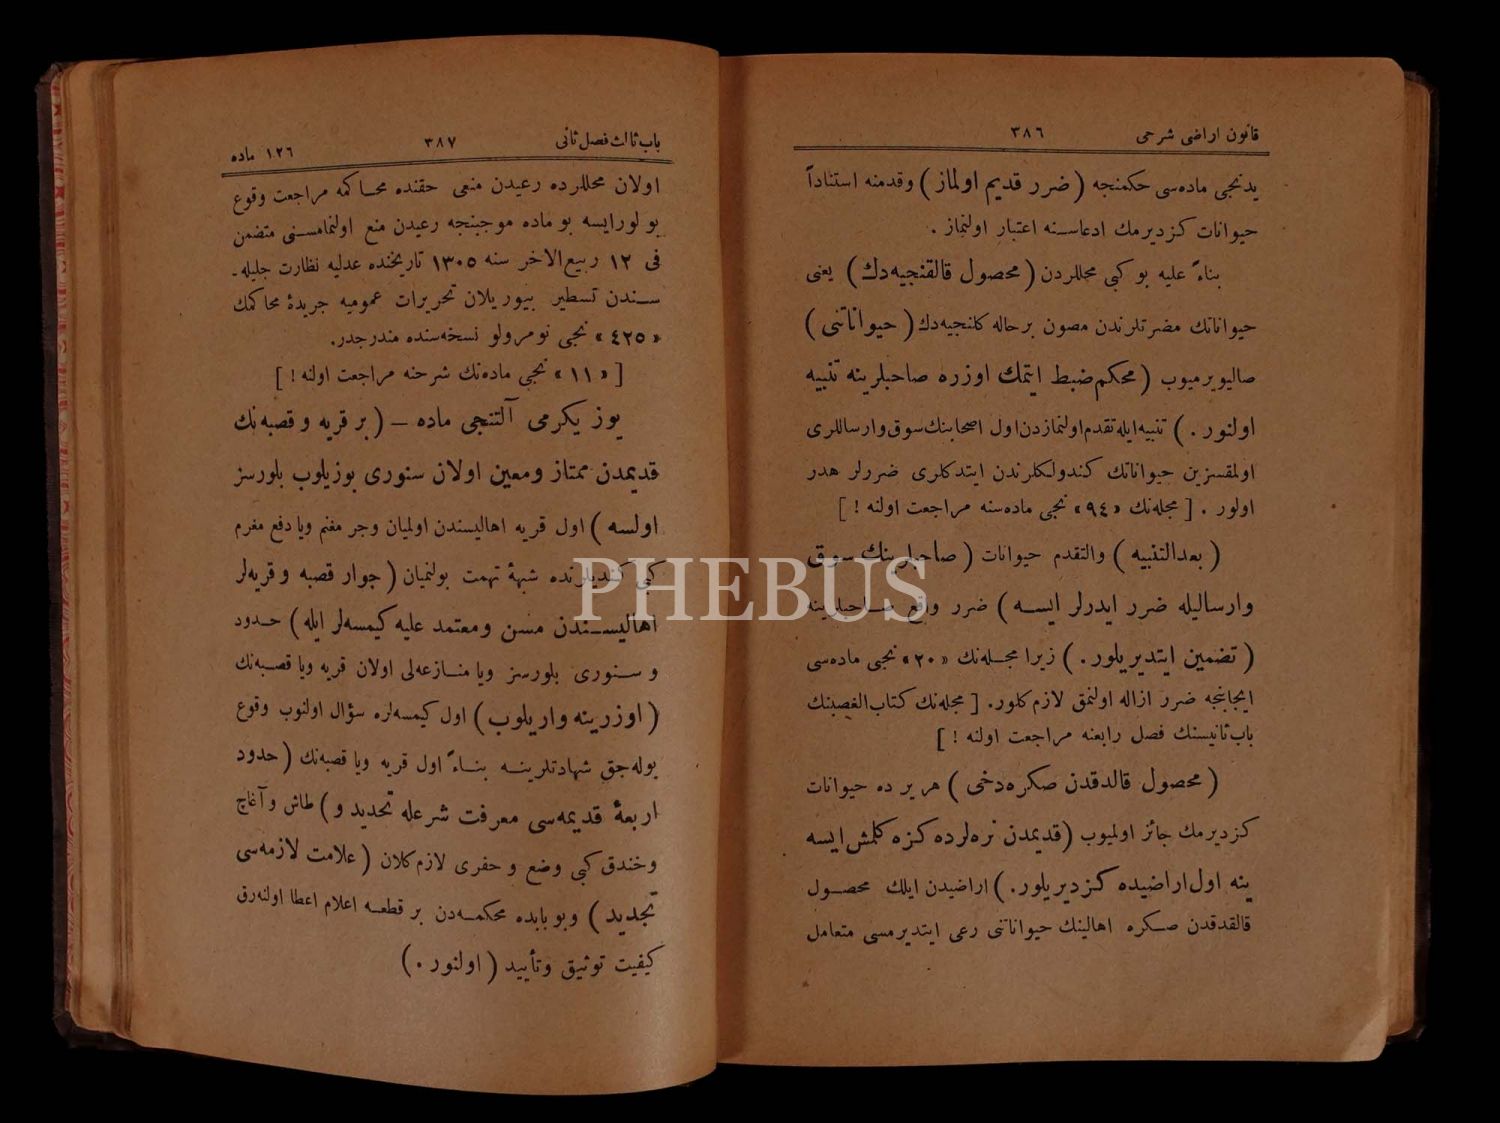 قانون اراضی شرحی ٣٨٦
یدنجی ماده‌سی حکمنجه ( ضرر قدیم اولماز ) وقدمنه استناداً
حیوانات کزدیرمك ادعاسنه اعتبار اولنماز .
بناءً علیه بو کبی محللردن ( محصول قالقنجیه‌دك ) یعنی
حیواناتك مضرتلرندن مصون برحاله کلنجیه‌دك ( حیواناتنی )
صالیویرمیوب ( محکم ضبط ایتمك اوزره صاحبلرینه تنبیه
اولنور . ) تنبیه ایله تقدم اولنمازدن اول اصحابنك سوق وارساللری
اولمقسزین حیواناتك کندولکلرندن ایتدکلری ضررلر هدر
اولور . [ مجله‌نك «٩٤» نجی ماده‌سنه مراجعت اولنه ! ]
( بعدالتنبیه ) والتقدم حیوانات ( صاحبلرینك سوق
وارسالیله ضرر ایدرلر ایسه ) ضرر واقع صاحبلرینه
( تضمین ایتدیریلور . ) زیرا مجله‌نك «٢٠» نجی ماده‌سی
ایجابنجه ضرر ازاله اولنمق لازم کلور. [ مجله‌نك کتاب الغصبنك
باب ثانیسنك فصل رابعنه مراجعت اولنه ! ]
( محصول قالدقدن صکره‌دخی ) هر یرده حیوانات
کزدیرمك جائز اولمیوب ( قدیمدن نره‌لرده کزه کلمش ایسه
ینه اول اراضیده کزدیریلور. ) اراضیدن ایلك محصول
قالقدقدن صکره اهالینك حیواناتنی رعی ایتدیرمسی متعامل
باب ثالث فصل ثانی ٣٨٧ ١٢٦ ماده
اولان محللرده رعیدن منعی حقنده محاکمه مراجعت وقوع
بولورایسه بو ماده موجبنجه رعیدن منع اولنمامسنی متضمن
فی ١٢ ربیع الاخر سنه ١٣٠٥ تاریخنده عدلیه نظارت جلیله‌-
سندن تسطیر بیوریلان تحریرات عمومیه جریدۀ محاکمك
«٤٢٥» نجی نومرولو نسخه‌سنده مندرجدر.
[ «١١» نجی ماده‌نك شرحنه مراجعت اولنه ! ]
یوز یکرمی آلتنجی ماده – ( بر قریه و قصبه‌نك
قدیمدن ممتاز ومعین اولان سنوری بوزیلوب بلورسز
اولسه ) اول قریه اهالیسندن اولمیان وجر مغنم ویا دفع مغرم
کبی کندیلرنده شبهۀ تهمت بولنمیان ( جوار قصبه و قریه‌لر
اهالیسندن مسن ومعتمد علیه کیمسه‌لر ایله ) حدود
و سنوری بلورسز ویا منازعه‌لی اولان قریه ویا قصبه‌نك
( اوزرینه واریلوب ) اول کیمسه‌لره سؤال اولنوب وقوع
بوله‌جق شهادتلرینه بناءً اول قریه ویا قصبه‌نك ( حدود
اربعۀ قدیمه‌سی معرفت شرعله تحدید و ) طاش وآغاج
وخندق کبی وضع و حفری لازم کلان ( علامت لازمه‌سی
تجدید ) وبو بابده محکمه‌دن بر قطعه اعلام اعطا اولنه‌رق
کیفیت توثیق وتأیید ( اولنور . )
PHEBUS